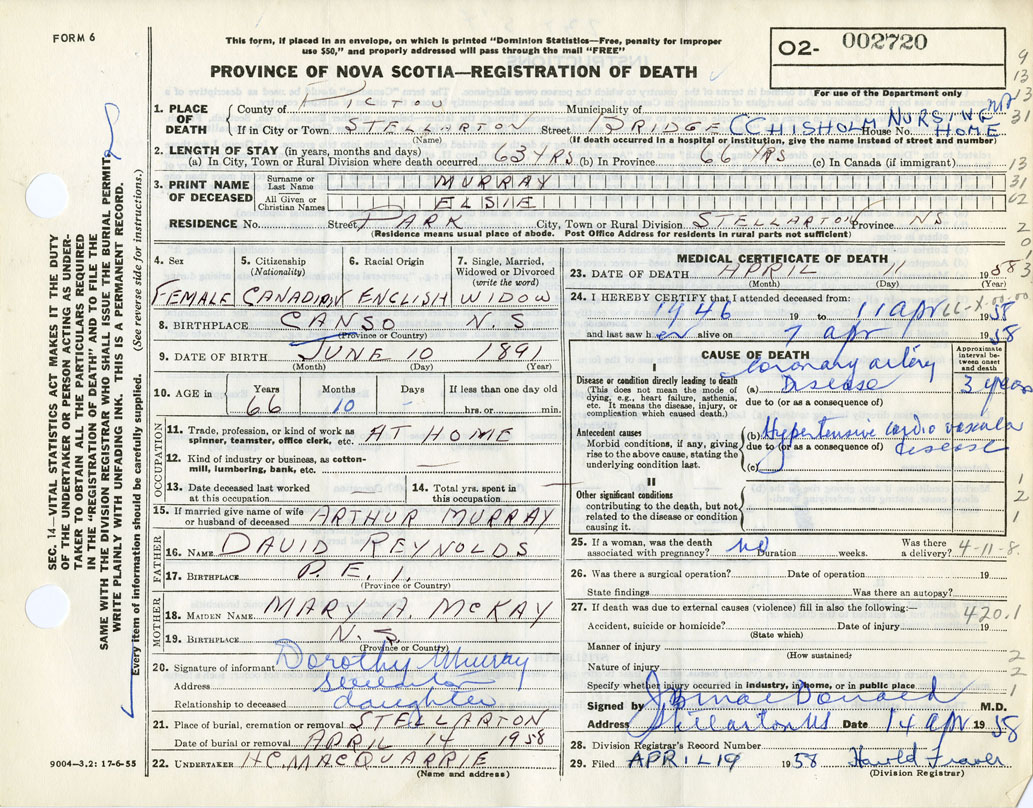 FORM 6
This form, if placed in an envelope, on which is printed "Dominion Statistics—Free, penalty for improper
use $50," and properly addressed will pass through the mail "FREE"
O2- 002720
For use of the Department only
PROVINCE OF NOVA SCOTIA—REGISTRATION OF DEATH
1. PLACE OF DEATH
County of PICTON Municipality of
If in City or Town STELLARTON Street BRIDGE CCHISHOLM NURSING HOME House No.
(Name) (If death occurred in a hospital or institution, give the name instead of street and number)
2. LENGTH OF STAY (in years, months and days)
(a) In City, Town or Rural Division where death occurred 63 YRS (b) In Province 66 YRS (c) In Canada (if immigrant)
3. PRINT NAME OF DECEASED
Surname or Last Name MURRAY
All Given or Christian Names ELSIE
RESIDENCE No. Street PARK City, Town or Rural Division STELLARTON Province NS
(Residence means usual place of abode. Post Office Address for residents in rural parts not sufficient)
4. Sex FEMALE
5. Citizenship (Nationality) CANADIAN
6. Racial Origin ENGLISH
7. Single, Married, Widowed or Divorced (write the word) WIDOW
8. BIRTHPLACE CANSO N.S
(Province or Country)
9. DATE OF BIRTH JUNE 10 1891
(Month) (Day) (Year)
10. AGE in Years 66 Months 10 Days - If less than one day old hrs. or min.
OCCUPATION
11. Trade, profession, or kind of work as spinner, teamster, office clerk, etc. AT HOME
12. Kind of industry or business, as cotton-mill, lumbering, bank, etc. —
13. Date deceased last worked at this occupation
14. Total yrs. spent in this occupation
15. If married give name of wife or husband of deceased ARTHUR MURRAY
FATHER
16. NAME DAVID REYNOLDS
17. BIRTHPLACE P.E.I.
(Province or Country)
MOTHER
18. MAIDEN NAME MARY A. McKAY
19. BIRTHPLACE N.S.
(Province or Country)
20. Signature of informant Dorothy Murray
Address Stellarton
Relationship to deceased daughter
21. Place of burial, cremation or removal STELLARTON
Date of burial or removal APRIL 14 1958
22. UNDERTAKER H.C. MACQUARRIE
(Name and address)
MEDICAL CERTIFICATE OF DEATH
23. DATE OF DEATH APRIL 11 1958
(Month) (Day)
24. I HEREBY CERTIFY that I attended deceased from:
1946 19 to 11 apr 1958
and last saw her alive on 7 apr 1958
CAUSE OF DEATH
Approximate interval between onset and death
I
Disease or condition directly leading to death
(This does not mean the mode of dying, e.g., heart failure, asthenia, etc. It means the disease, injury, or complication which caused death.)
(a) Coronary artery Disease 3 years
due to (or as a consequence of)
Antecedent causes
Morbid conditions, if any, giving rise to the above cause, stating the underlying condition last.
(b) Hypertensive cardio vascular disease
due to (or as a consequence of)
(c)
II
Other significant conditions
contributing to the death, but not related to the disease or condition causing it.
25. If a woman, was the death associated with pregnancy? no Duration weeks. Was there a delivery? 4-11-8.
26. Was there a surgical operation? Date of operation 19
State findings Was there an autopsy?
27. If death was due to external causes (violence) fill in also the following:—
420.1
Accident, suicide or homicide? Date of injury 19
(State which)
Manner of injury
(How sustained)
Nature of injury
Specify whether injury occurred in industry, in home, or in public place
Signed by J B MacDonald M.D.
Address Stellarton NS Date 14 apr 1958
28. Division Registrar's Record Number
29. Filed APRIL 19 1958 Harold Fraser
(Division Registrar)
SEC. 14—VITAL STATISTICS ACT MAKES IT THE DUTY
OF THE UNDERTAKER OR PERSON ACTING AS UNDER-
TAKER TO OBTAIN ALL THE PARTICULARS REQUIRED
IN THE "REGISTRATION OF DEATH" AND TO FILE THE
SAME WITH THE DIVISION REGISTRAR WHO SHALL ISSUE THE BURIAL PERMIT
WRITE PLAINLY WITH UNFADING INK. THIS IS A PERMANENT RECORD.
Every item of information should be carefully supplied. (See reverse side for instructions.)
9004—3.2: 17-6-55